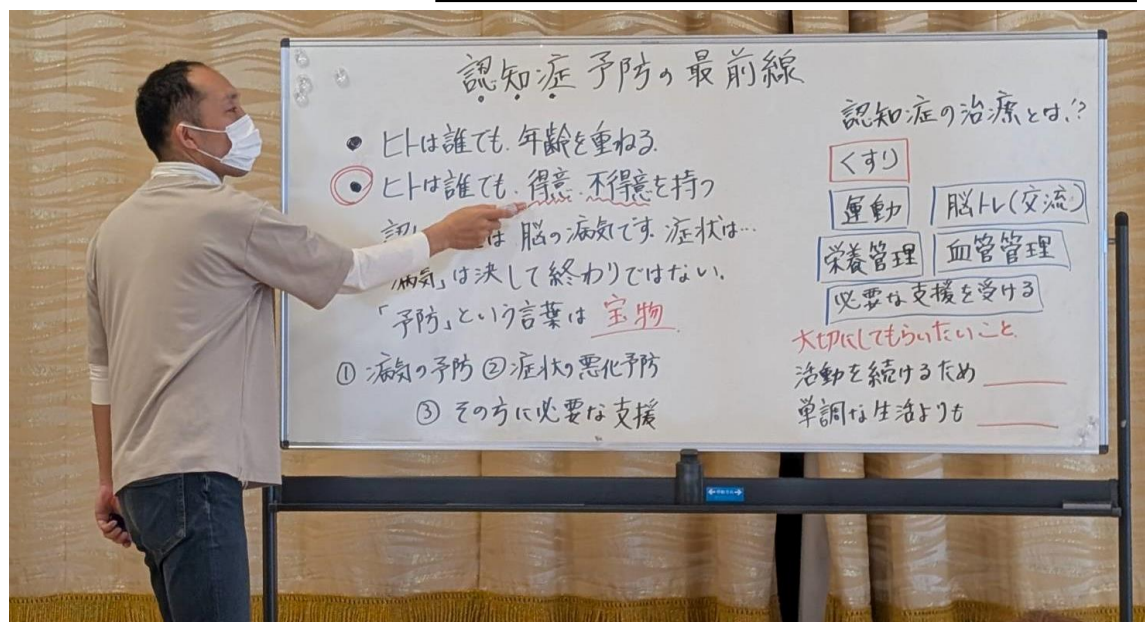 認知症予防の最前線
ヒトは誰でも、年齢を重ねる。
ヒトは誰でも、得意、不得意を持つ
認 は 脳の病気です。症状は…
病気」は決して終わりではない。
「予防」という言葉は 宝物
① 病気の予防 ② 症状の悪化予防
③ その方に必要な支援
認知症の治療とは!?
くすり
運動 脳トレ(交流)
栄養管理 血管管理
必要な支援を受ける
大切にしてもらいたいこと
活動を続けるため
単調な生活よりも